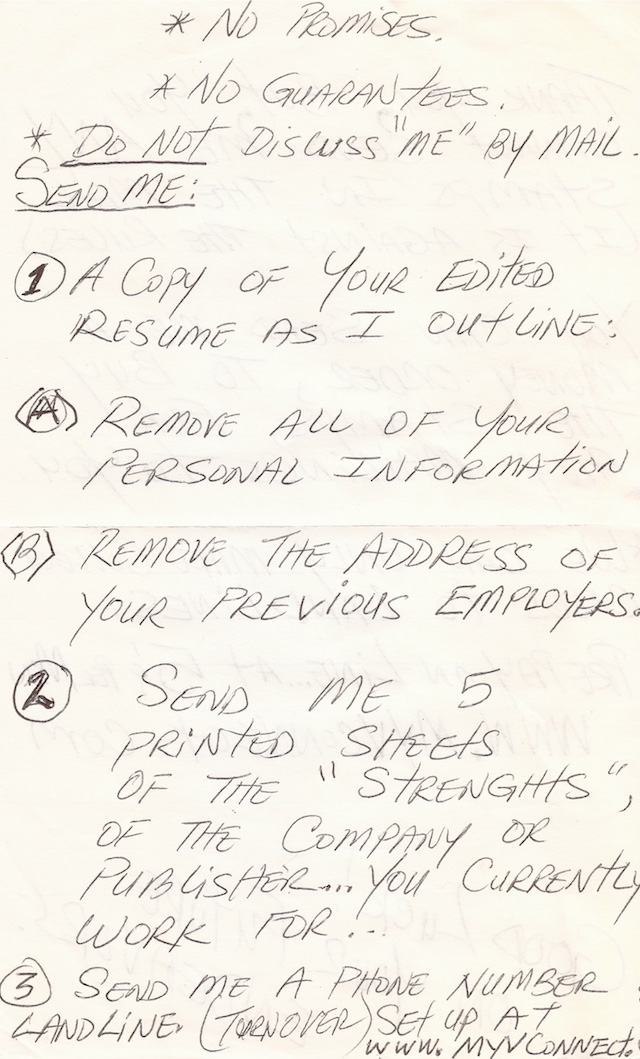 * NO PROMISES.
* NO GUARANTEES.
* DO NOT DISCUSS "ME" BY MAIL.
SEND ME:
1 A COPY OF YOUR EDITED
RESUME AS I OUTLINE:
A REMOVE ALL OF YOUR
PERSONAL INFORMATION
B REMOVE THE ADDRESS OF
YOUR PREVIOUS EMPLOYERS.
2 SEND ME 5
PRINTED SHEETS
OF THE "STRENGHTS",
OF THE COMPANY OR
PUBLISHER... YOU CURRENTLY
WORK FOR...
3 SEND ME A PHONE NUMBER
LANDLINE. (TURNOVER) SET UP AT
WWW.MYVCONNECT.